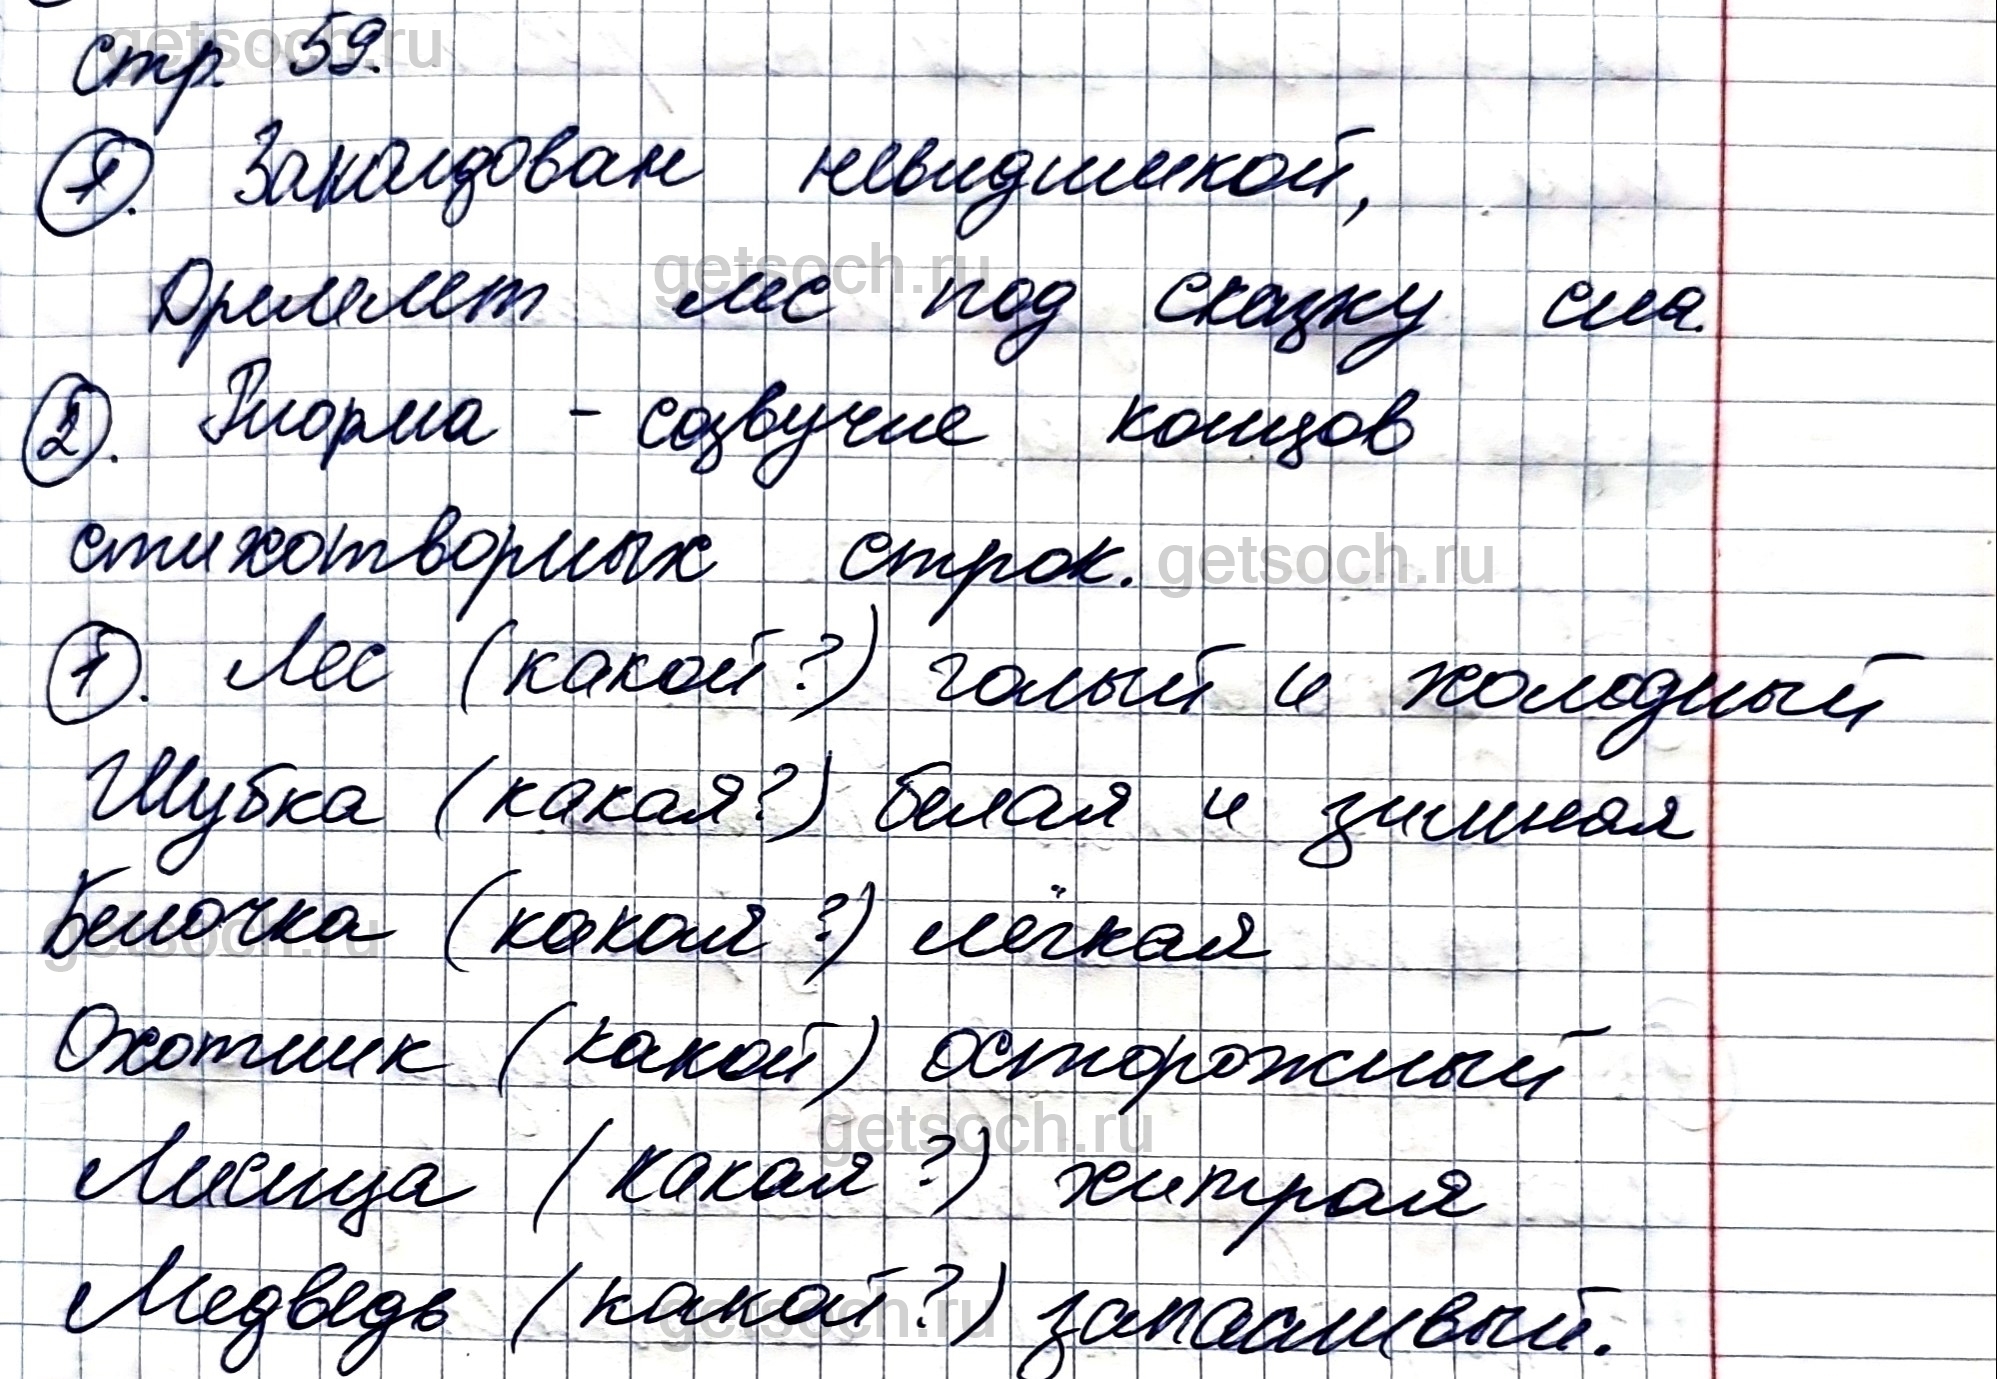 стр. 59.
1. Заколдован невидимкой,
Дремлет лес под сказку сна.
2. Рифма - созвучие концов
стихотворных строк. getsoch.ru
1. Лес (какой?) голый и холодный
Шубка (какая?) белая и зимная
Белочка (какая?) лёгкая
Охотник (какой) осторожный
Лисица (какая?) хитрая
Медведь (какой?) запасливый.
getsoch.ru
getsoch.ru
getsoch.ru
getsoch.ru
getsoch.ru